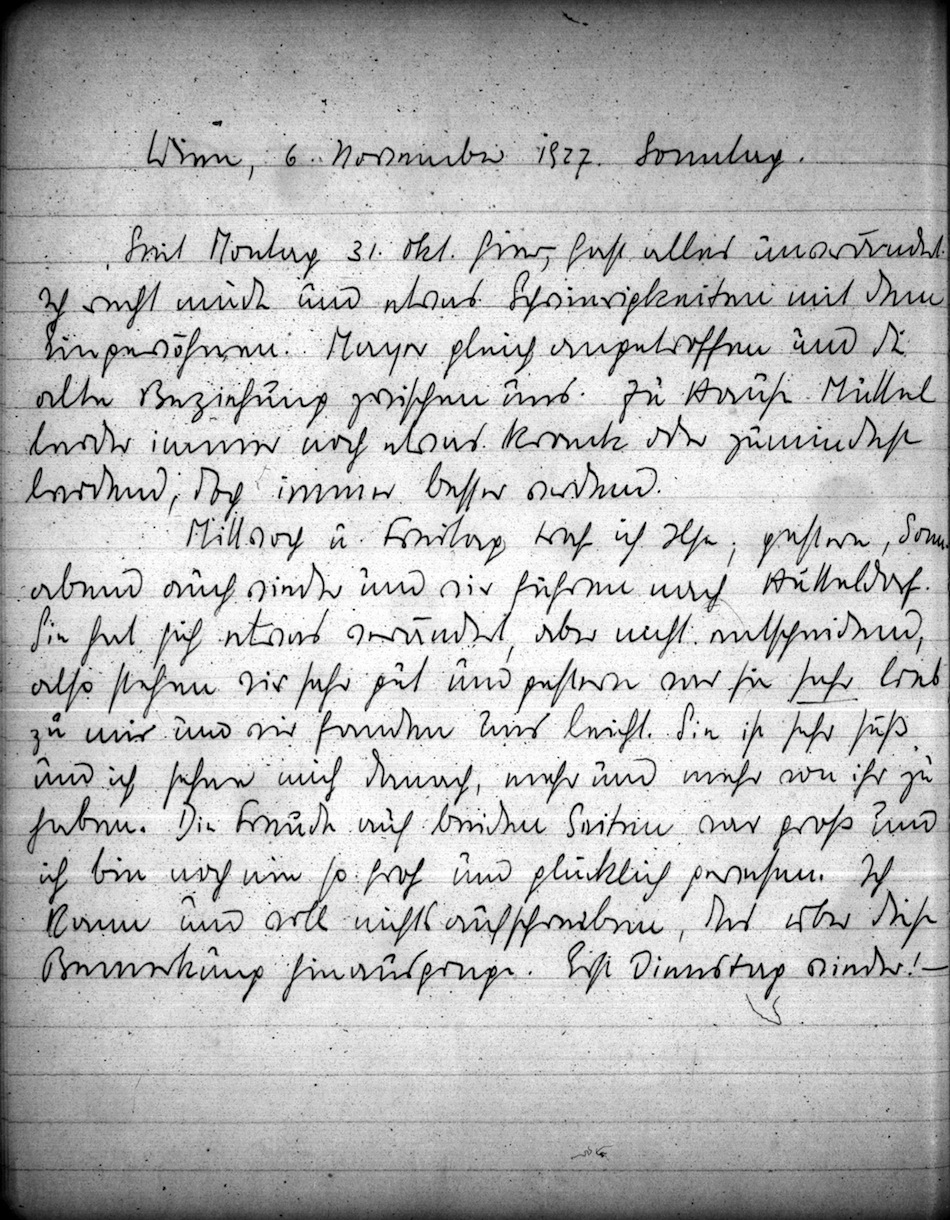 Wien, 6. November 1927. Sonntag.
Seit Montag 31. Okt. hier, fast alles unverändert.
Ich recht müde und etwas Schwierigkeiten mit dem
Eingewöhnen. Mayer gleich angetroffen und die
alte Beziehung zwischen uns. Zu Hause Muttel
leider immer noch etwas krank oder zumindest
leidend, doch immer besser werdend.
Mittwoch u. Freitag traf ich Ilse, gestern, Sonn-
abend auch wieder und wir fuhren nach Hütteldorf.
Sie hat sich etwas verändert, aber nicht entscheidend,
also stehen wir sehr gut und gestern war sie sehr lieb
zu mir und wir fanden uns leicht. Sie ist sehr süß
und ich sehne mich danach, mehr und mehr von ihr zu
haben. Die Freude auf beiden Seiten war groß und
ich bin noch nie so froh und glücklich gewesen. Ich
kann und will nichts aufschreiben, das über diese
Bemerkung hinausginge. Erst Dienstag wieder! –